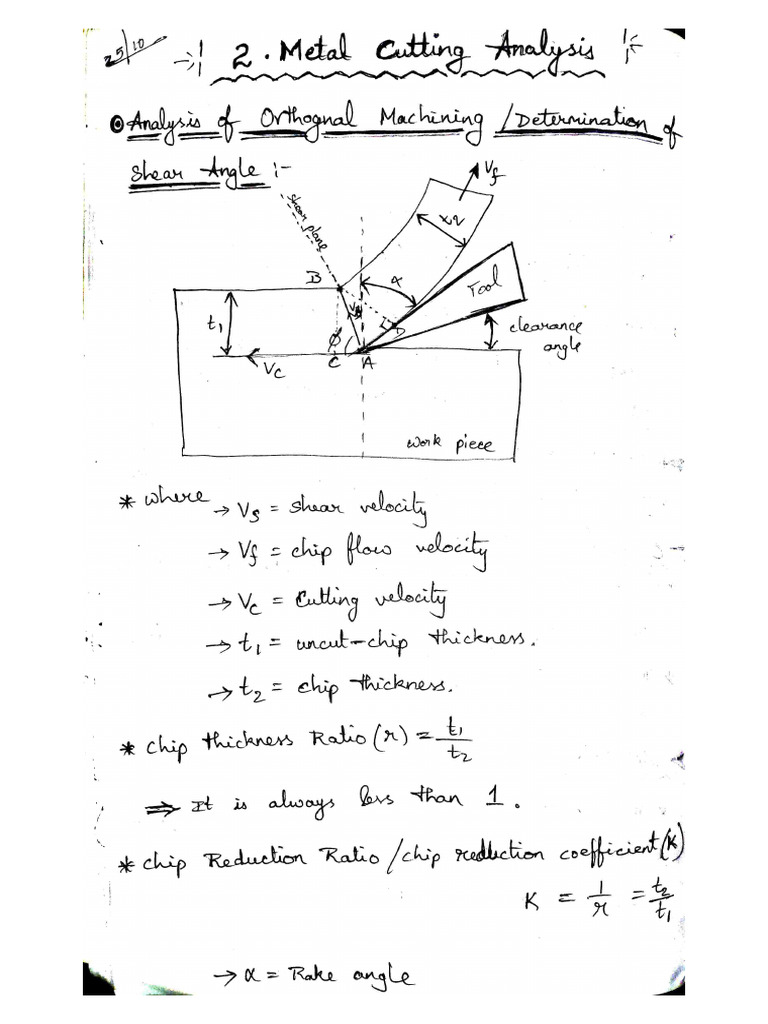 25/10
2. Metal Cutting Analysis
Analysis of Orthognal Machining / Determination of
Shear Angle :-
Vf
shear plane
t2
B
α
Tool
Vs
t1
φ
D
clearance
angle
C A
Vc
work piece
* where → Vs = shear velocity
→ Vf = chip flow velocity
→ Vc = Cutting velocity
→ t1 = uncut-chip thickness.
→ t2 = chip thickness.
* chip thickness Ratio (r) = t1/t2
⇒ It is always less than 1.
* chip Reduction Ratio / chip reduction coefficient (K)
K = 1/r = t2/t1
→ α = Rake angle